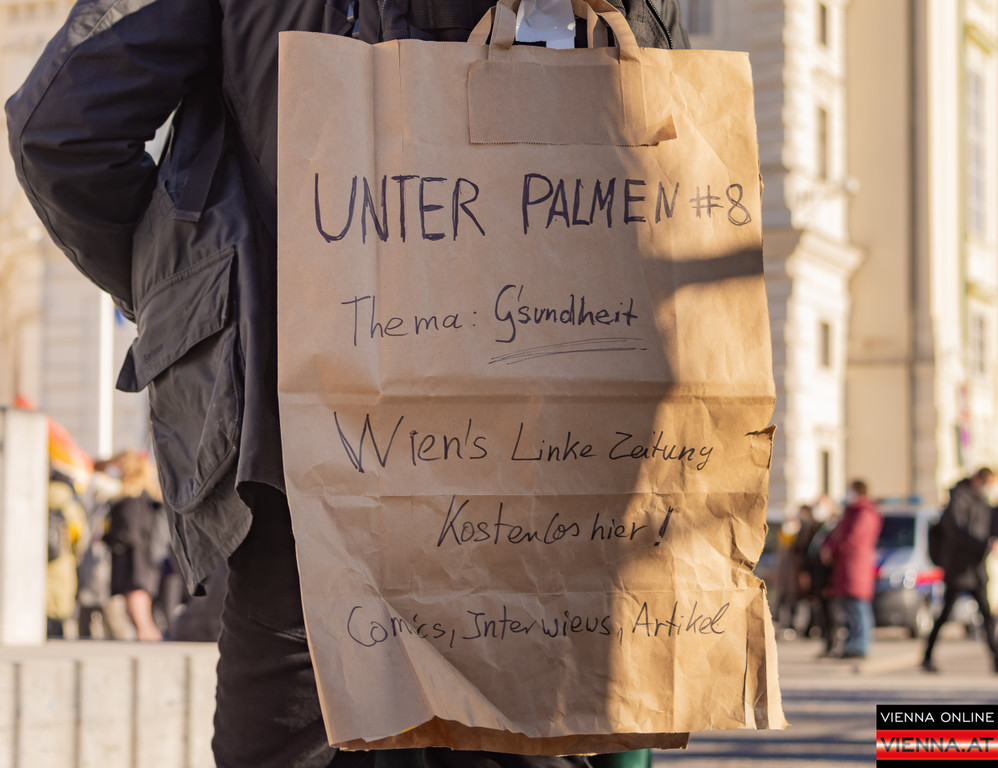 UNTER PALMEN #8
Thema: G'sundheit
Wien's Linke Zeitung
Kostenlos hier!
Comics, Interwievs, Artikel
VIENNA ONLINE
VIENNA.AT